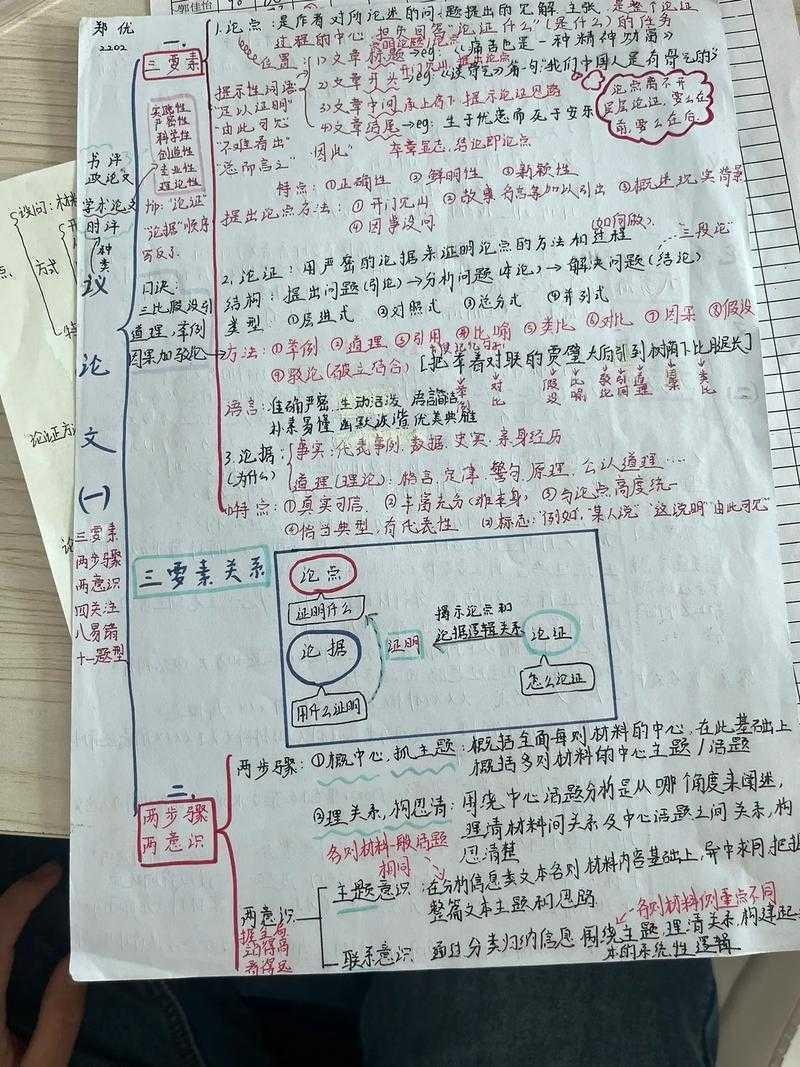 郭佳怡
郑优
2202
议论文(一)
三要素
两步骤
两意识
四关注
八易错
十一题型
书评
政论文
学术论文
时评
种类
一.
三要素
实践性
严密性
科学性
创造性
专业性
理论性
tip: "论证"
"论据"顺序
写反了
口诀:
三比假设引
道理,举例
因果加驳论
1. 论点:是作者对所论述的问题提出的见解 主张 是整个论证
过程的中心 担负回答"论证什么"(是什么)的任务
位置:
1)文章标题→eg:《痛苦也是一种精神功课》
2)文章开头 eg:《谈骨气》首句:"我们中国人是有骨气的"
3)文章中间 承上启下 提示论证思路
4)文章结尾→eg: 生于忧患而死于安乐
卒章显志,结论即论点
提示性词语
"足以证明"
"由此可见"
"不难看出"
"总而言之" "因此"
论点离不开
层层论证,要么在
前,要么在后
特点:①正确性 ②鲜明性 ③新颖性
提出论点方法:①开门见山 ②故事 名言等加以引出 ③概述现实背景
④因事设问
(如何做)
2. 论证:用严密的论据来证明论点的方法和过程 "三段论"
结构:提出问题(引论)→分析问题(本论)→解决问题(结论)
类型 ①层进式 ②对照式 ③总分式 ④并列式
方法:①举例 ②道理 ③引用 ④比喻 ⑤类比 ⑥对比 ⑦因果 ⑧假设
⑨驳论(破立结合) [把举着对联的贾璧太后引到树荫下比腿长]
语言:准确严密 生动活泼 语言简洁
朴素易懂 幽默诙谐 优美典雅
3. 论据:
(为什么)
事实:代表事例,数据,史实,亲身经历
道理(理论):格言,定律,警句,原理,公认道理……
特点:①真实可信 ②丰富充分 ③与论点高度统一
④恰当典型,有代表性 (2)标志:"例如,"某人说""这说明""由此可见"
三要素关系
论点
证明什么
论据
用什么证明
证明
揭示论点和
论据逻辑关系
论证
怎么论证
二.
两步骤
两意识
两步骤:①概中心,抓主题:概括全面每则材料的中心,在此基础上
概括多则材料的中心主题/话题
②理关系,构思清:围绕中心话题分析是从哪个角度来阐述,
理清材料间关系及中心话题之间关系,构
思清楚
各则材料一般话题
相同
两意识
主题意识:在分析信息类文本各则材料内容基础上,异中求同,把握
整篇文本主题和思路
各则材料侧重点不同
联系意识:通过分类归纳信息 围绕主题,理清关系,构建起文
本的系统性逻辑
设问:
方式
论证方法